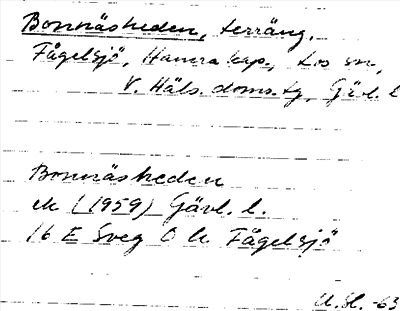 Bonnäsheden, terräng.
Fågelsjö, Hamra kap., Los sn,
V. Häls. doms.tg, Gävl. l
Bonnäsheden
ek (1959) Gävl. l.
16 E Sveg O h Fågelsjö
-63